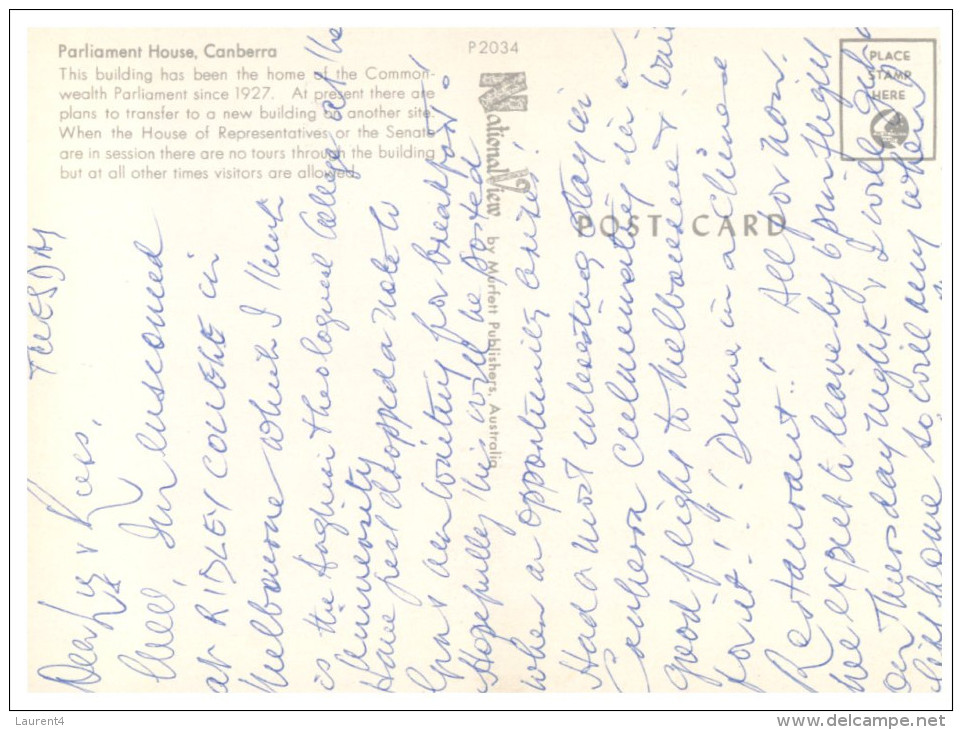 Parliament House, Canberra
This building has been the home of the Common-
wealth Parliament since 1927. At present there are
plans to transfer to a new building on another site.
When the House of Representatives or the Senate
are in session there are no tours through the building
but at all other times visitors are allowed.
P2034
National View
by Murfett Publishers, Australia
PLACE
STAMP
HERE
POST CARD
TUESDAY
Dear &
Well, I'm ensconced
at RIDLEY COLLEGE in
Melbourne which I think
is the Anglican Theological College at the
University
Have just dropped a note to
am waiting for breakfast!
Hopefully this will be posted
when an opportunity arises!
Had a most interesting stay in
Canberra
good flight to Melbourne &
for it!! Dinner in a Chinese
Restaurant..! All for now.
We expect to leave by 6 p.m. flight
on Thursday night & I will
home so will my